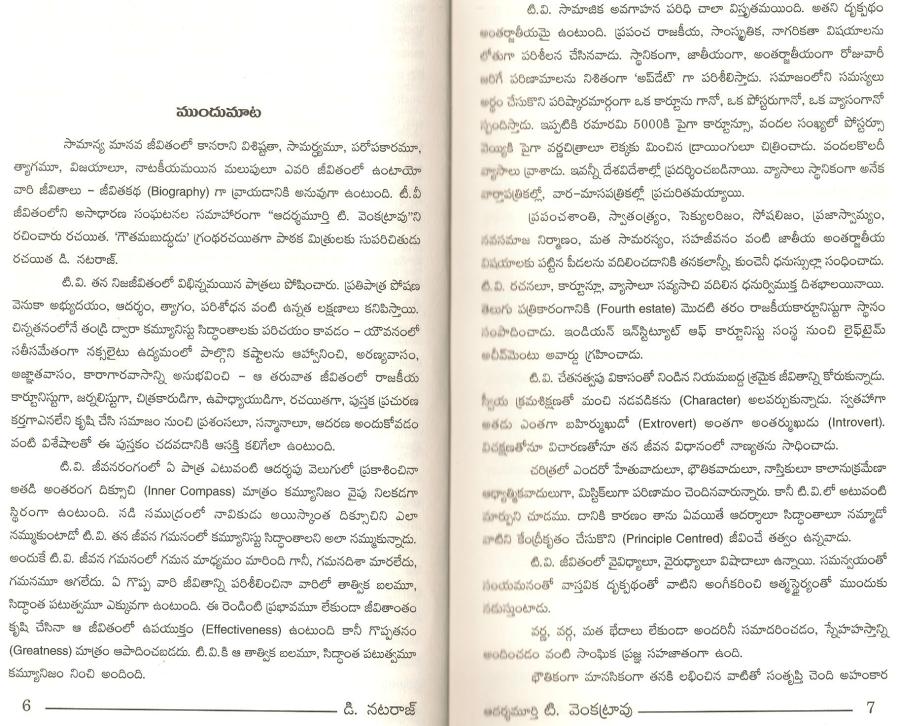 ముందుమాట
సామాన్య మానవ జీవితంలో కానరాని విశిష్టతా, సామర్థ్యమూ, పరోపకారమూ,
త్యాగమూ, విజయాలూ, నాటకీయమయిన మలుపులూ ఎవరి జీవితంలో ఉంటాయో
వారి జీవితాలు – జీవితకథ (Biography) గా వ్రాయడానికి అనువుగా ఉంటుంది. టీ.వీ
జీవితంలోని అసాధారణ సంఘటనల సమాహారంగా “ఆదర్శమూర్తి టి. వెంకట్రావు”ని
రచించారు రచయిత. ‘గౌతమబుద్ధుడు’ గ్రంథరచయితగా పాఠక మిత్రులకు సుపరిచితుడు
రచయిత డి. నటరాజ్.
టి.వి. తన నిజజీవితంలో విభిన్నమయిన పాత్రలు పోషించారు. ప్రతిపాత్ర పోషణ
వెనుకా అభ్యుదయం, ఆదర్శం, త్యాగం, పరిశోధన వంటి ఉన్నత లక్షణాలు కనిపిస్తాయి.
చిన్నతనంలోనే తండ్రి ద్వారా కమ్యూనిస్టు సిద్ధాంతాలకు పరిచయం కావడం – యౌవనంలో
సతీసమేతంగా నక్సలైటు ఉద్యమంలో పాల్గొని కష్టాలను ఆహ్వానించి, అరణ్యవాసం,
అజ్ఞాతవాసం, కారాగారవాసాన్ని అనుభవించి – ఆ తరువాత జీవితంలో రాజకీయ
కార్టూనిస్టుగా, జర్నలిస్టుగా, చిత్రకారుడిగా, ఉపాధ్యాయుడిగా, రచయితగా, పుస్తక ప్రచురణ
కర్తగాఎనలేని కృషి చేసి సమాజం నుంచి ప్రశంసలూ, సన్మానాలూ, ఆదరణ అందుకోవడం
వంటి విశేషాలతో ఈ పుస్తకం చదవడానికి ఆసక్తి కలిగేలా ఉంటుంది.
టి.వి. జీవనరంగంలో ఏ పాత్ర ఎటువంటి ఆదర్శపు వెలుగులో ప్రకాశించినా
అతడి అంతరంగ దిక్సూచి (Inner Compass) మాత్రం కమ్యూనిజం వైపు నిలకడగా
స్థిరంగా ఉంటుంది. నడి సముద్రంలో నావికుడు అయిస్కాంత దిక్సూచిని ఎలా
నమ్ముకుంటాడో టి.వి. తన జీవన గమనంలో కమ్యూనిస్టు సిద్ధాంతాలని అలా నమ్ముకున్నాడు.
అందుకే టి.వి. జీవన గమనంలో గమన మాధ్యమం మారింది గానీ, గమనదిశా మారలేదు,
గమనమూ ఆగలేదు. ఏ గొప్ప వారి జీవితాన్ని పరిశీలించినా వారిలో తాత్విక బలమూ,
సిద్ధాంత పటుత్వమూ ఎక్కువగా ఉంటుంది. ఈ రెండింటి ప్రభావమూ లేకుండా జీవితాంతం
కృషి చేసినా ఆ జీవితంలో ఉపయుక్తం (Effectiveness) ఉంటుంది కానీ గొప్పతనం
(Greatness) మాత్రం ఆపాదించబడదు. టి.వి.కి ఆ తాత్విక బలమూ, సిద్ధాంత పటుత్వమూ
కమ్యూనిజం నించి అందింది.
6 డి. నటరాజ్
టి.వి. సామాజిక అవగాహన పరిధి చాలా విస్తృతమయింది. అతని దృక్పథం
అంతర్జాతీయమై ఉంటుంది. ప్రపంచ రాజకీయ, సాంస్కృతిక, నాగరికతా విషయాలను
లోతుగా పరిశీలన చేసినవాడు. స్థానికంగా, జాతీయంగా, అంతర్జాతీయంగా రోజువారీ
జరిగే పరిణామాలను నిశితంగా ‘అప్‌డేట్’ గా పరిశీలిస్తాడు. సమాజంలోని సమస్యలు
అర్థం చేసుకొని పరిష్కారమార్గంగా ఒక కార్టూను గానో, ఒక పోస్టరుగానో, ఒక వ్యాసంగానో
స్పందిస్తాడు. ఇప్పటికి రమారమి 5000కి పైగా కార్టూన్సూ, వందల సంఖ్యలో పోస్టర్సూ
వెయ్యికి పైగా వర్ణచిత్రాలూ లెక్కకు మించిన డ్రాయింగులూ చిత్రించాడు. వందలకొలదీ
వ్యాసాలు వ్రాశాడు. ఇవన్నీ దేశవిదేశాల్లో ప్రదర్శించబడినాయి. వ్యాసాలు స్థానికంగా అనేక
వార్తాపత్రికల్లో, వార-మాసపత్రికల్లో ప్రచురితమయ్యాయి.
ప్రపంచశాంతి, స్వాతంత్ర్యం, సెక్యులరిజం, సోషలిజం, ప్రజాస్వామ్యం,
నవసమాజ నిర్మాణం, మత సామరస్యం, సహజీవనం వంటి జాతీయ అంతర్జాతీయ
విషయాలకు పట్టిన పీడలను వదిలించడానికి తనకలాన్నీ, కుంచెనీ ధనుస్సుల్లా సంధించాడు.
టి.వి. రచనలూ, కార్టూన్లూ, వ్యాసాలూ సవ్యసాచి వదిలిన ధనుర్విముక్త దిశభాలయినాయి.
తెలుగు పత్రికారంగానికి (Fourth estate) మొదటి తరం రాజకీయకార్టూనిస్టుగా స్థానం
సంపాదించాడు. ఇండియన్ ఇన్‌స్టిట్యూట్ ఆఫ్ కార్టూనిస్టు సంస్థ నుంచి లైఫ్‌టైమ్
అచీవ్‌మెంటు అవార్డు గ్రహించాడు.
టి.వి. చేతనత్వపు వికాసంతో నిండిన నియమబద్ధ శ్రామిక జీవితాన్ని కోరుకున్నాడు.
స్వీయ క్రమశిక్షణతో మంచి నడవడికను (Character) అలవర్చుకున్నాడు. స్వతహాగా
అతడు ఎంతగా బహిర్ముఖుడో (Extrovert) అంతగా అంతర్ముఖుడు (Introvert).
విచక్షణతోనూ విచారణతోనూ తన జీవన విధానంలో నాణ్యతను సాధించాడు.
చరిత్రలో ఎందరో హేతువాదులూ, భౌతికవాదులూ, నాస్తికులూ కాలానుక్రమేణా
ఆధ్యాత్మికవాదులుగా, మిస్టిక్‌లుగా పరిణామం చెందినవారున్నారు. కానీ టి.వి.లో అటువంటి
మార్పుని చూడము. దానికి కారణం తాను ఏవయితే ఆదర్శాలూ సిద్ధాంతాలూ నమ్మాడో
వాటిని కేంద్రీకృతం చేసుకొని (Principle Centred) జీవించే తత్వం ఉన్నవాడు.
టి.వి. జీవితంలో వైవిధ్యాలూ, వైరుధ్యాలూ విషాదాలూ ఉన్నాయి. సమన్వయంతో
సంయమనంతో వాస్తవిక దృక్పథంతో వాటిని అంగీకరించి ఆత్మస్థైర్యంతో ముందుకు
నడుస్తుంటాడు.
వర్ణ, వర్గ, మత భేదాలు లేకుండా అందరినీ సమాదరించడం, స్నేహహస్తాన్ని
అందించడం వంటి సాంఘిక ప్రజ్ఞ సహజాతంగా ఉంది.
భౌతికంగా మానసికంగా తనకి లభించిన వాటితో సంతృప్తి చెంది అహంకార
ఆదర్శమూర్తి టి. వెంకట్రావు 7